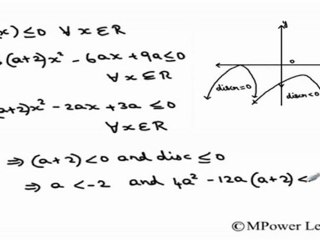 x) ≤ 0 ∀ x ∈ R
(a+2)x² - 6ax + 9a ≤ 0
∀ x ∈ R
a+2)x² - 2ax + 3a ≤ 0
∀ x ∈ R
⇒ (a+2) < 0 and disc ≤ 0
⇒ a < -2 and 4a² - 12a (a+2) <
y
0
x
discn = 0
discn < 0
©MPower Le